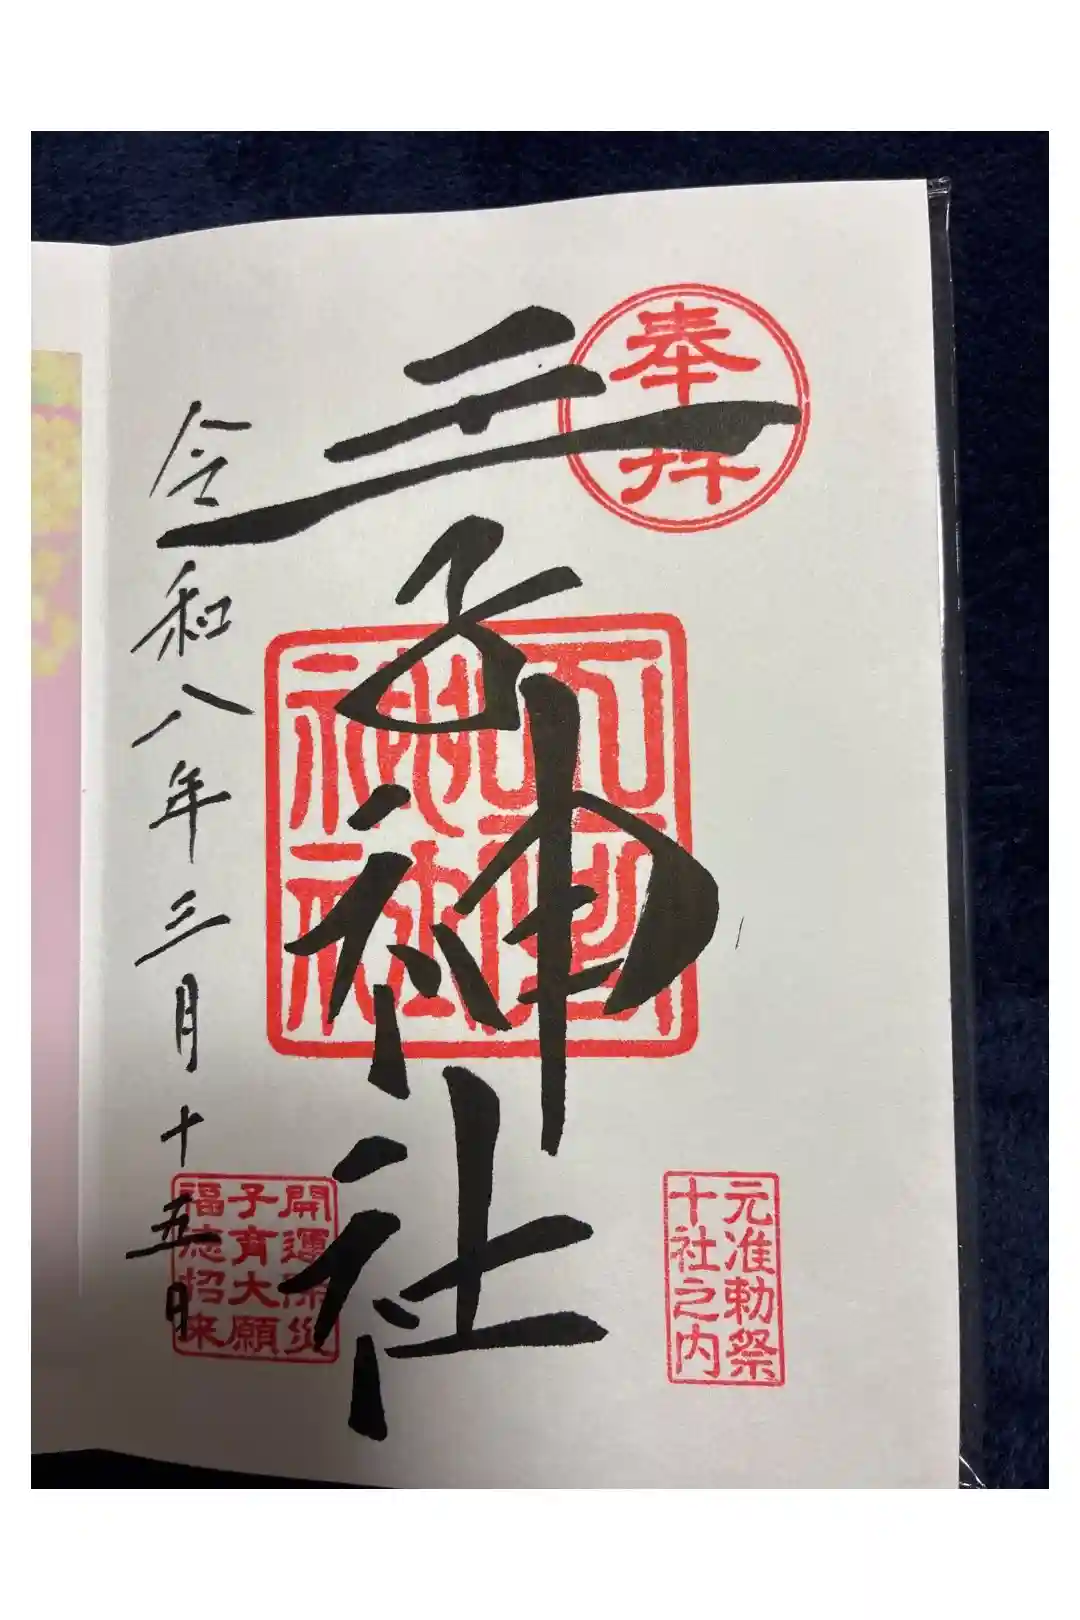 奉拝
元准勅祭
十社之内
王子神社
神社
開運除災
子育大願
福徳招来
令和八年三月十五日